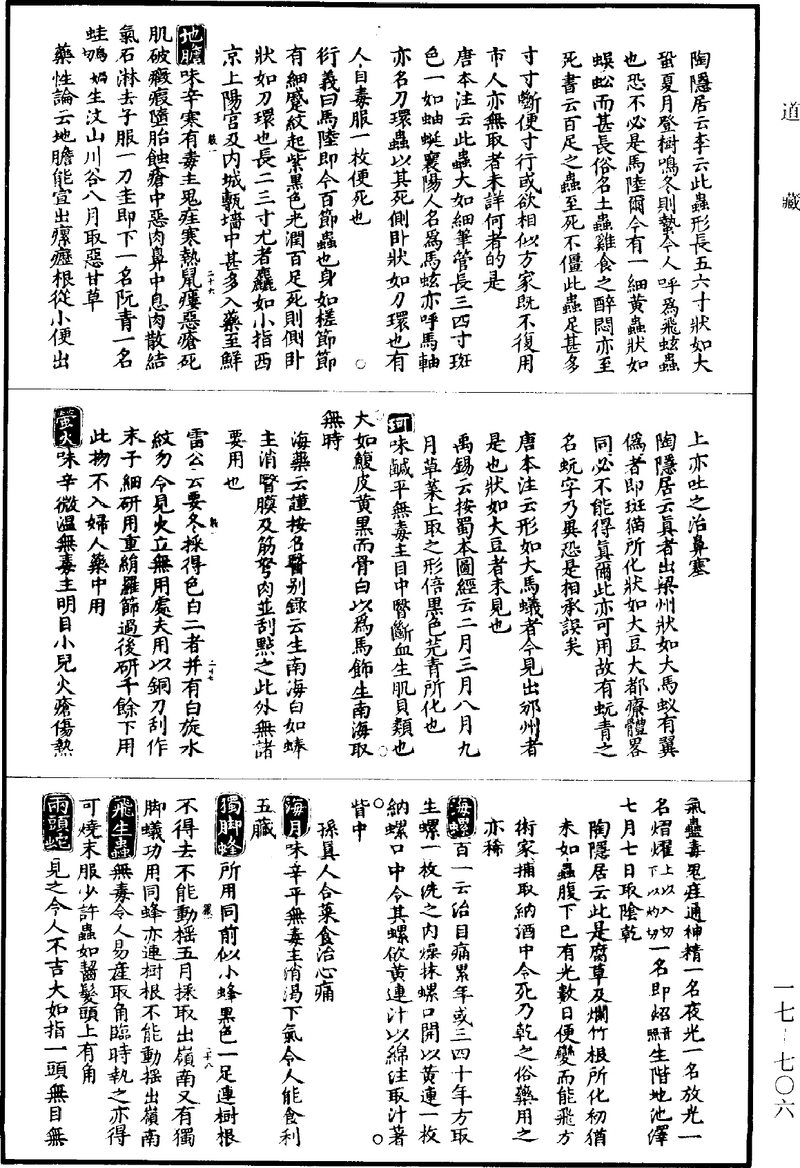 道藏
陶隱居云李云此蟲形長五六寸狀如大
蛩夏月登樹鳴冬則蟄令人呼爲飛蚿蟲
也恐不必是馬陸爾今有一細黃蟲狀如
蜈蚣而甚長俗名土蟲雞食之醉悶亦至
死書云百足之蟲至死不僵此蟲足甚多
寸寸斷便寸行或欲相似方家既不復用
市人亦無取者未詳何者的是
唐本注云此蟲大如細筆管長三四寸斑
色一如蚰蜒襄陽人名爲馬蚿亦呼馬軸
亦名刀環蟲以其死側卧狀如刀環也有
人自毒服一枚便死也
衍義曰馬陸即今百節蟲也身如槎節節
有細蹙紋起紫黑色光潤百足死則側卧
狀如刀環也長二三寸尤者麤如小指西
京上陽宮及內城甎墻中甚多入藥至鮮
地膽味辛寒有毒主鬼疰寒熱鼠瘻惡瘡死
肌破癥瘕墮胎蝕瘡中惡肉鼻中息肉散結
氣石淋去子服一刀圭即下一名阮青一名
蛙生汶山川谷八月取惡甘草
藥性論云地膽能宣出瘰癧根從小便出
上亦吐之治鼻塞
陶隱居云眞者出梁州狀如大馬蟻有翼
僞者即斑猫所化狀如大豆大都療體畧
同必不能得眞爾此亦可用故有蚖青之
名蚖字乃異恐是相承誤矣
唐本注云形如大馬蟻者今見出邠州者
是也狀如大豆者未見也
禹錫云按蜀本圖經云二月三月八月九
月草菜上取之形倍黑色芫青所化也
珂味鹹平無毒主目中瞖斷血生肌貝類也
大如鰒皮黃黑而骨白以爲馬飾生南海取
無時
海藥云謹按名醫别錄云生南海白如蜯
主消瞖膜及筋弩肉並刮點之此外無諸
要用也
雷公云要冬採得色白二者并有白旋水
紋勿令見火立無用處夫用以銅刀刮作
末子細研用重絹羅篩過後研千餘下用
此物不入婦人藥中用
螢火味辛微温無毒主明目小兒火瘡傷熱
氣蠱毒鬼疰通神精一名夜光一名放光一
名熠燿上以入切下以灼切一名即炤音照生階地池澤
七月七日取陰乾
陶隱居云此是腐草及爛竹根所化初猶
未如蟲腹下已有光數日便變而能飛方
術家捕取納酒中令死乃乾之俗藥用之
亦稀
海螺百一云治目痛累年或三四十年方取
生螺一枚洗之內燥抹螺口開以黃連一枚
納螺口中令其螺飲黃連汁以綿注取汁著
眥中
孫眞人合菜食治心痛
海月味辛平無毒主消渴下氣令人能食利
五藏
獨脚蜂所用同前似小蜂黑色一足連樹根
不得去不能動搖五月採取出嶺南又有獨
脚蟻功用同蜂亦連樹根不能動搖出嶺南
飛生蟲無毒令人易産取角臨時執之亦得
可燒末服少許蟲如齧髮頭上有角
兩頭蛇見之令人不吉大如指一頭無目無
一七‐七〇六